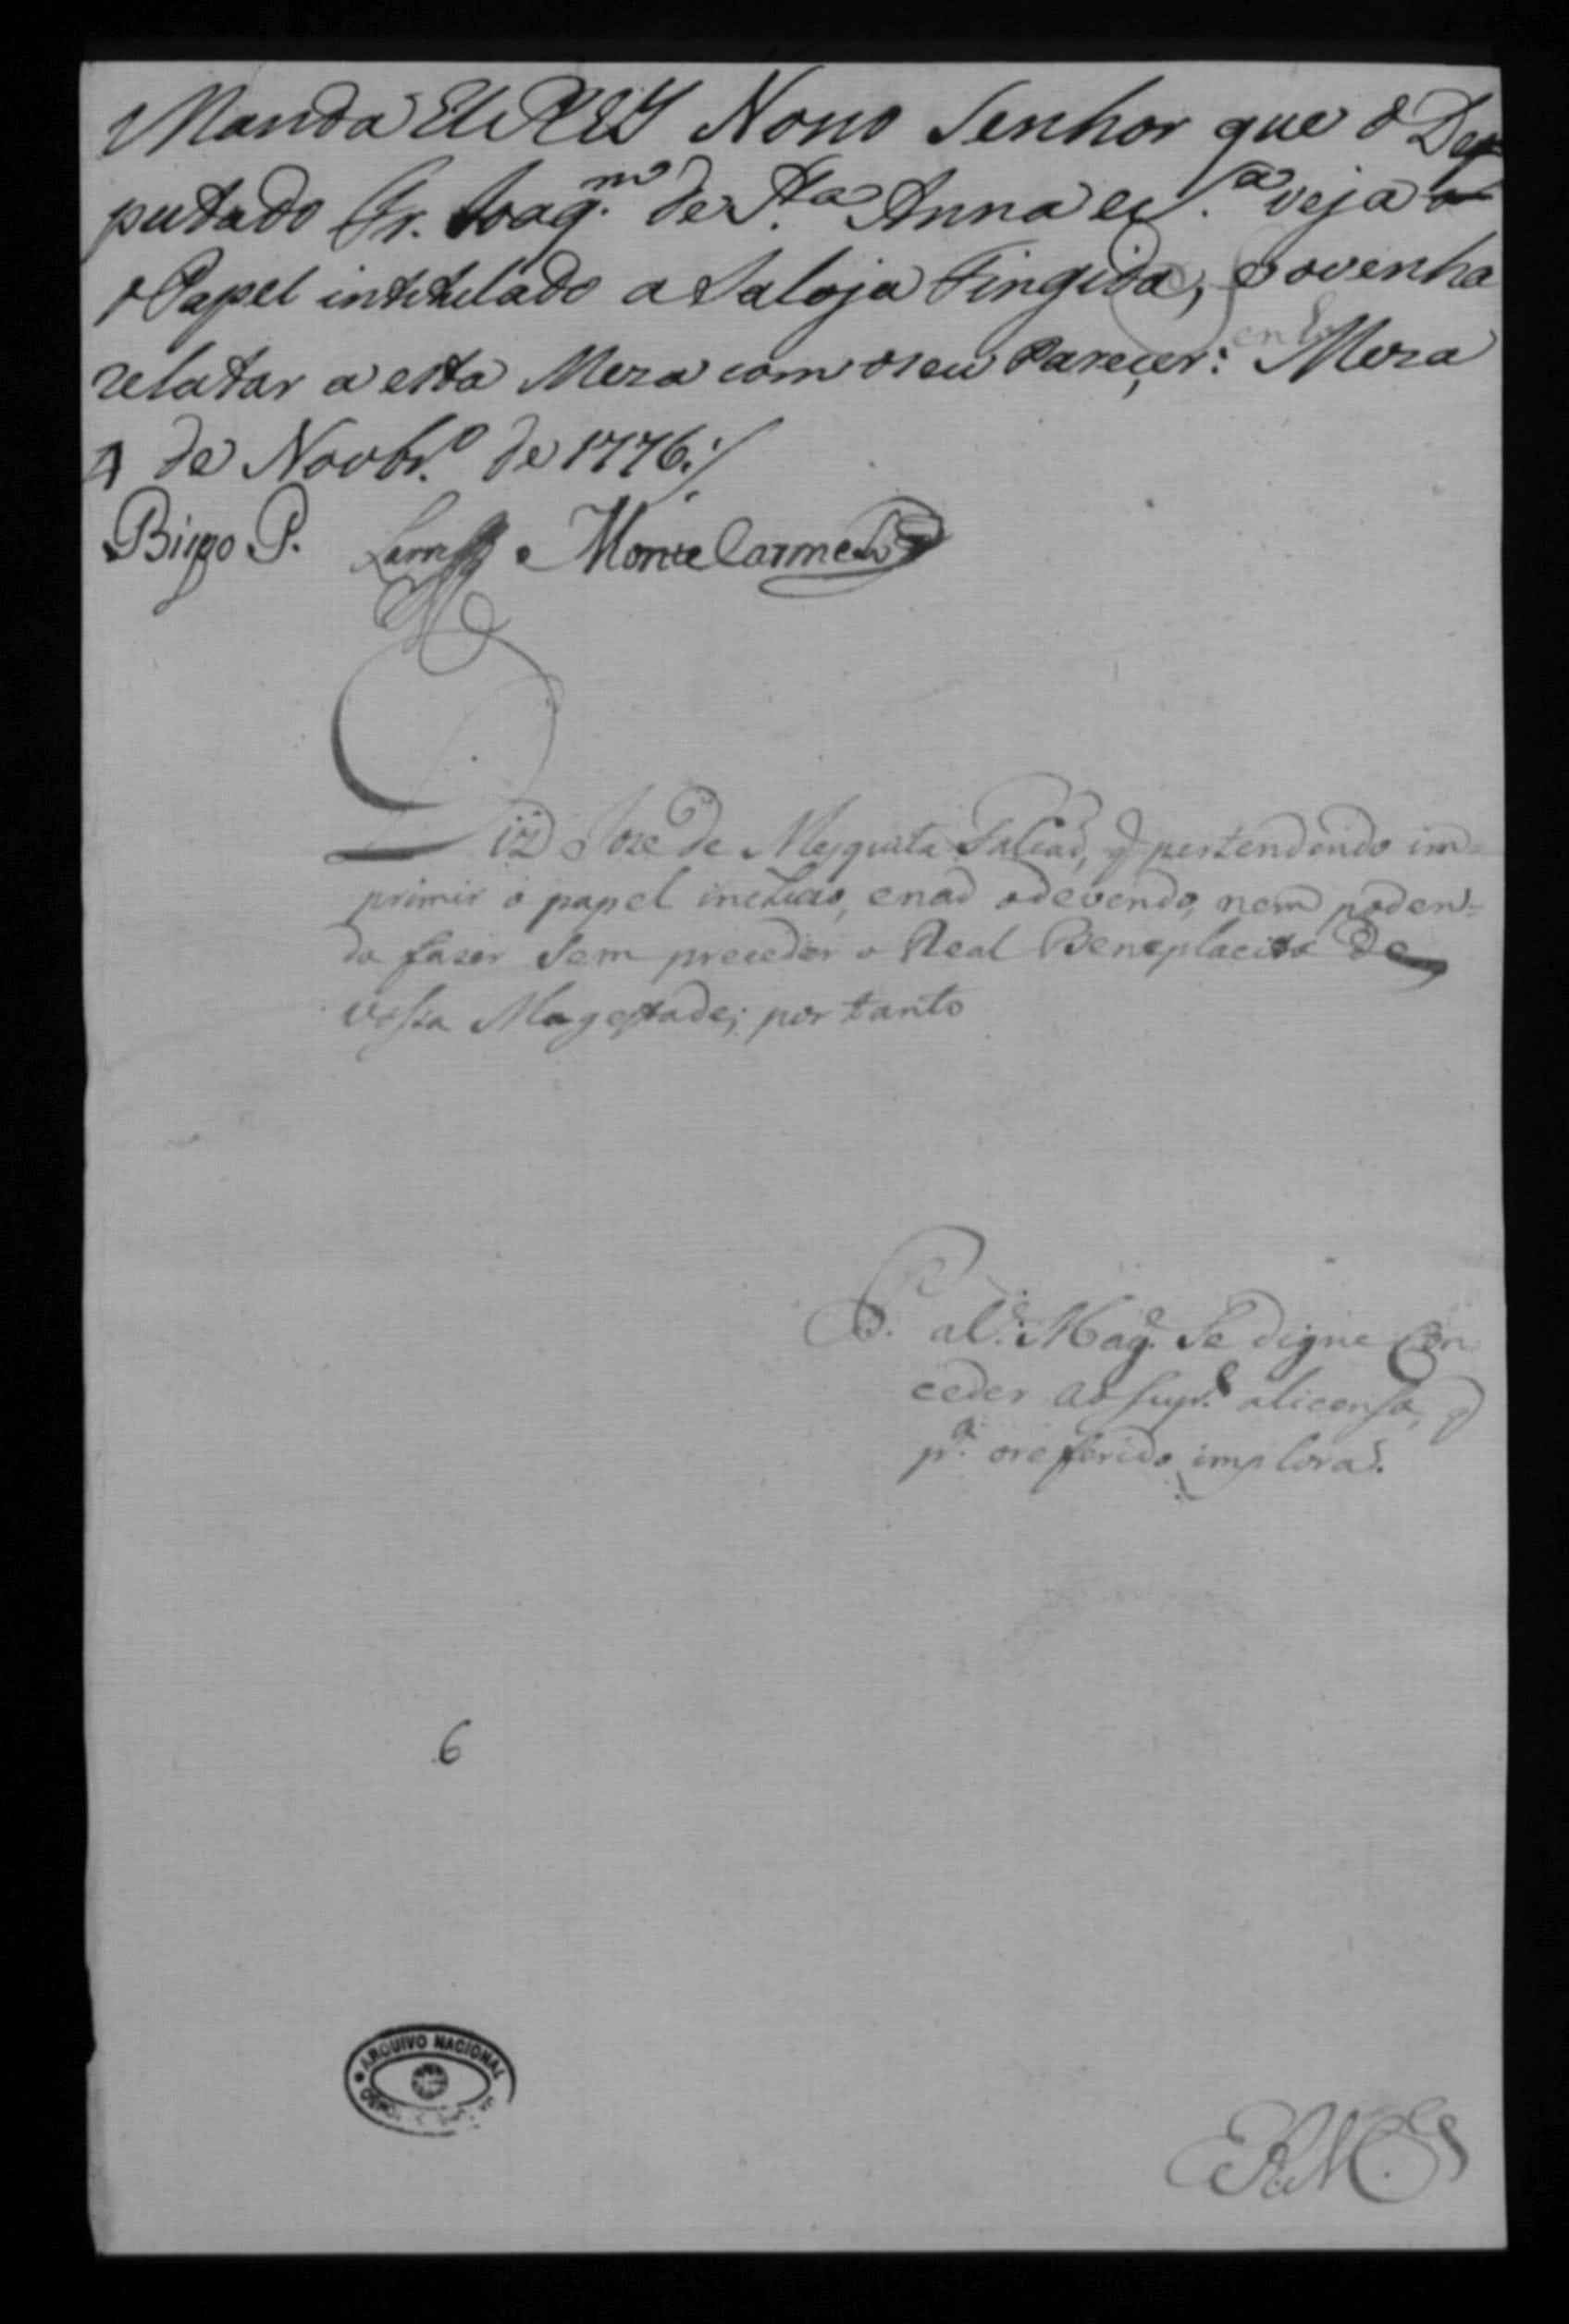 Manda El REY Nosso Senhor que o De=
putado Fr. Joaq.m de S.ta Anna e S.a veja o
o Papel intitulado a Saloja Fingida, e o venha
relatar a esta Meza com o seu Pareçer: Meza
4 de Novbr.o de 1776:/
Bispo P. Monte Carmelo
Senhor
Diz Joze de Mesquita Falcaõ, q pertendendo im=
primir o papel incluzo, e naõ o devendo, nem poden=
do fazer sem preceder o Real Beneplacito de
vossa Magestade; por tanto
P. a V. Mag.e Se digne Con
ceder ao Supp.e a licensa, q
p.a o referido implora.
6
ARQUIVO NACIONAL
E R M.ce